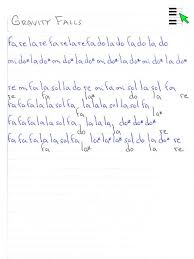 GRAVITY FALLS
fa re la re fa re la re fa do la do fa do la do
mi do* la do* mi do* la do* mi do* la do* mi do* la do*
re mi fa la sol la do re mi fa mi sol la sol fa
re fa la* do la re
fa fa fa la la sol fa la la la sol fa sol
fa fa fa la la sol fa la la la do* do* do*
re fa do la
fa fa fa la la sol fa la* la* la* sol do la do re
re fa la* do la re